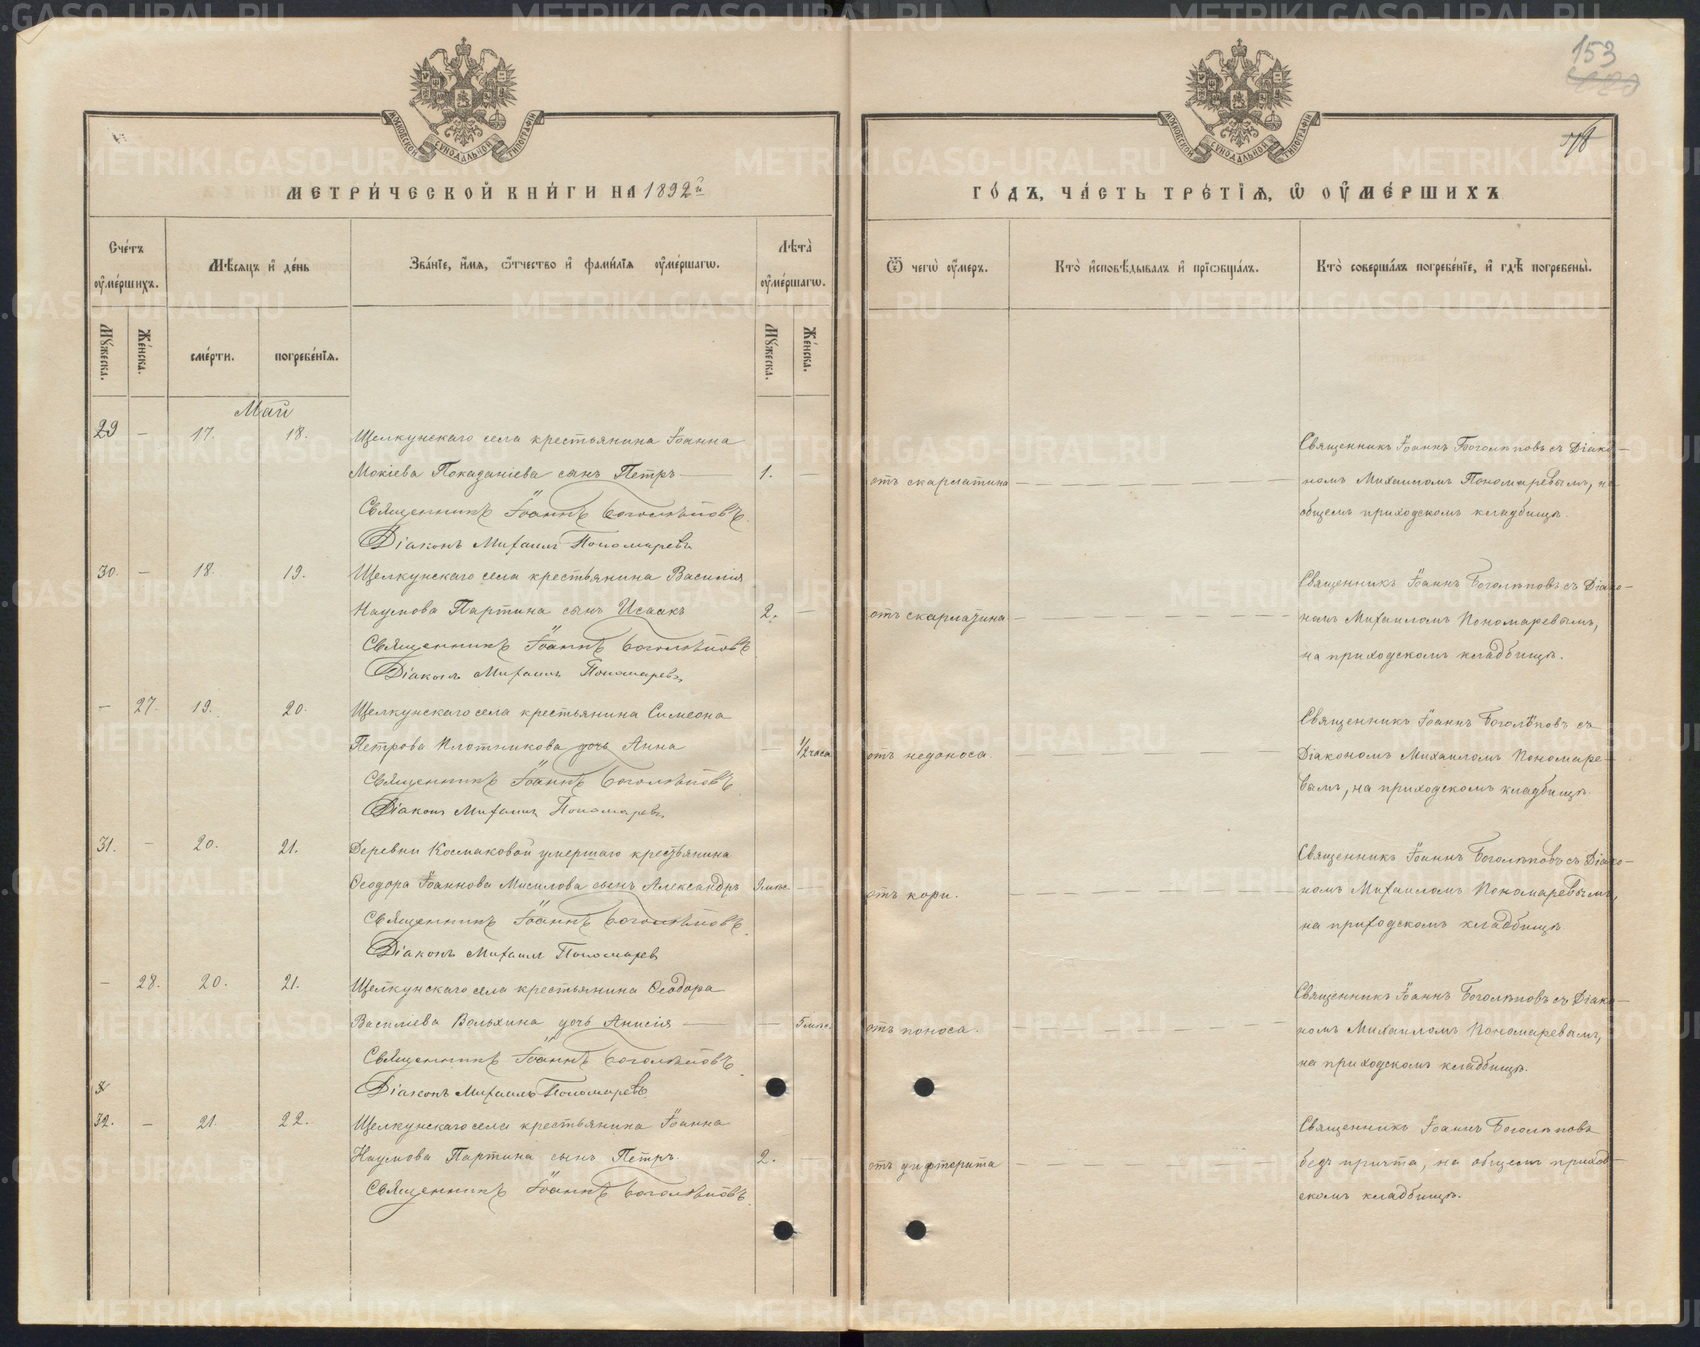 153
МЕТРИ́ЧЕСКОЙ КНИ́ГИ НА 1892й
ГО́ДЪ, ЧА́СТЬ ТРЕ́ТІЯ, Ѽ ОУМЕ́РШИХЪ
МОСКОВСКОЙ СУНОДАЛЬНОЙ ТИПОГРАФІИ
МОСКОВСКОЙ СУНОДАЛЬНОЙ ТИПОГРАФІИ
Сче́тъ оуме́ршихъ.
Мѣсяцъ и де́нь
Зва́ніе, и́мя, ѻ́тчество и фами́лія оуме́ршагѡ.
Лѣта̀ оуме́ршагѡ.
Ѿ чегѡ̀ оу́меръ.
Кто̀ исповѣ́дывалъ и пріѻбща́лъ.
Кто̀ соверша́лъ погребе́ніе, и гдѣ̀ погребены̀.
Му́жеска.
Же́нска.
сме́рти.
погребе́нія.
Му́жеска.
Же́нска.
Май
29 — 17. 18. Щелкунскаго села крестьянина Іоанна
Мокіева Показаніева сынъ Петръ — 1.
Священникъ Іоаннъ Боголѣповъ.
Діаконъ Михаилъ Пономаревъ
отъ скарлатина
Священникъ Іоаннъ Боголѣповъ съ Діако-
номъ Михаиломъ Пономаревымъ, на
общемъ приходскомъ кладбищѣ.
30. — 18. 19. Щелкунскаго села крестьянина Василія
Наумова Партина сынъ Исаакъ 2. —
Священникъ Іоаннъ Боголѣповъ
Діаконъ Михаилъ Пономаревъ
отъ скарлатина
Священникъ Іоаннъ Боголѣповъ съ Діако-
номъ Михаиломъ Пономаревымъ,
на приходскомъ кладбищѣ.
— 27. 19. 20. Щелкунскаго села крестьянина Симеона
Петрова Плотникова дочь Анна — 1/2 часа
Священникъ Іоаннъ Боголѣповъ
Діаконъ Михаилъ Пономаревъ
отъ недоноса.
Священникъ Іоаннъ Боголѣповъ съ
Діакономъ Михаиломъ Пономаре-
вымъ, на приходскомъ кладбищѣ.
31. — 20. 21. Деревни Космаковой умершаго крестьянина
Ѳеодора Іоаннова Мисилова сынъ Александръ 9 мѣс. —
Священникъ Іоаннъ Боголѣповъ.
Діаконъ Михаилъ Пономаревъ
отъ кори.
Священникъ Іоаннъ Боголѣповъ съ Діако-
номъ Михаиломъ Пономаревымъ,
на приходскомъ кладбищѣ.
— 28. 20. 21. Щелкунскаго села крестьянина Ѳеодора
Василіева Вольхина дочь Анисія — — 5 мѣс.
Священникъ Іоаннъ Боголѣповъ.
Діаконъ Михаилъ Пономаревъ
отъ поноса.
Священникъ Іоаннъ Боголѣповъ съ Діако-
номъ Михаиломъ Пономаревымъ,
на приходскомъ кладбищѣ.
32. — 21. 22. Щелкунскаго села крестьянина Іоанна
Наумова Партина сынъ Петръ. 2.
Священникъ Іоаннъ Боголѣповъ.
отъ дифтерита
Священникъ Іоаннъ Боголѣповъ
безъ причта, на общемъ приход-
скомъ кладбищѣ.
METRIKI.GASO-URAL.RU